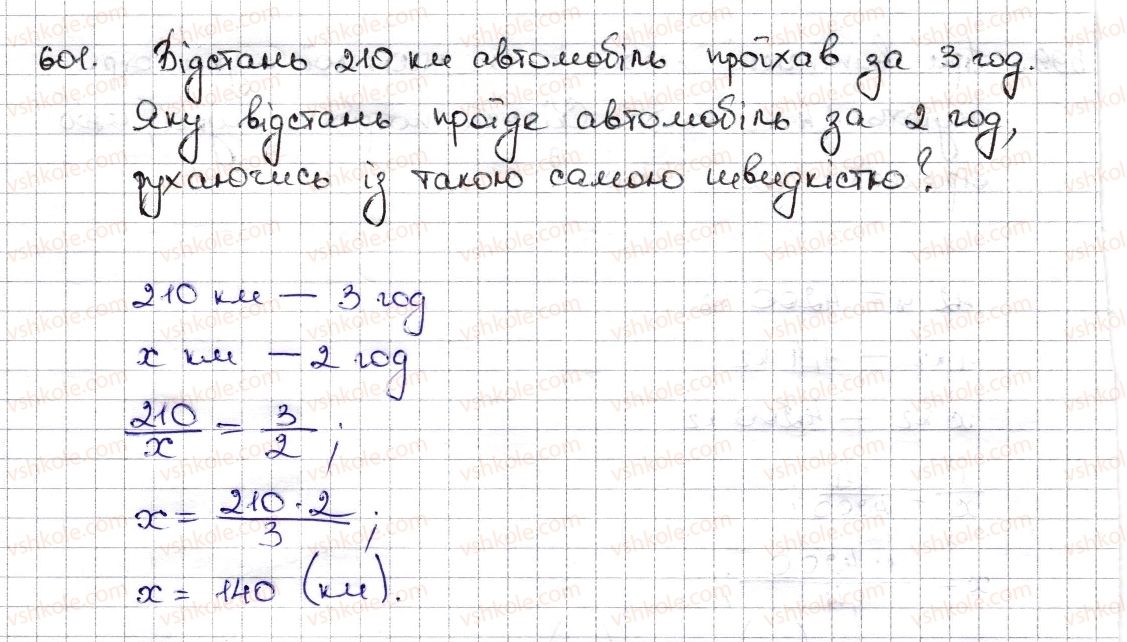 601. Відстань 210 км автомобіль проїхав за 3 год.
Яку відстань проїде автомобіль за 2 год,
рухаючись із такою самою швидкістю?
210 км — 3 год
x км — 2 год
210/x = 3/2 ;
x = 210 · 2/3 ;
x = 140 (км).